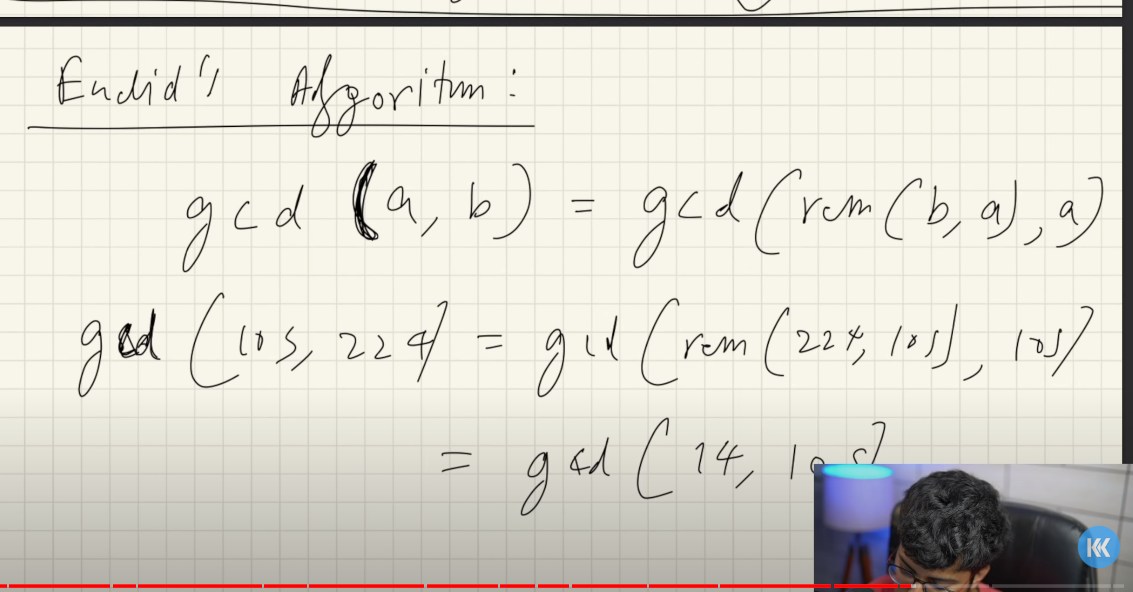 Euclid's Algoritm:
gcd (a, b) = gcd (rem (b, a), a)
gcd (105, 224) = gcd (rem (224, 105), 105)
= gcd (14, 105)